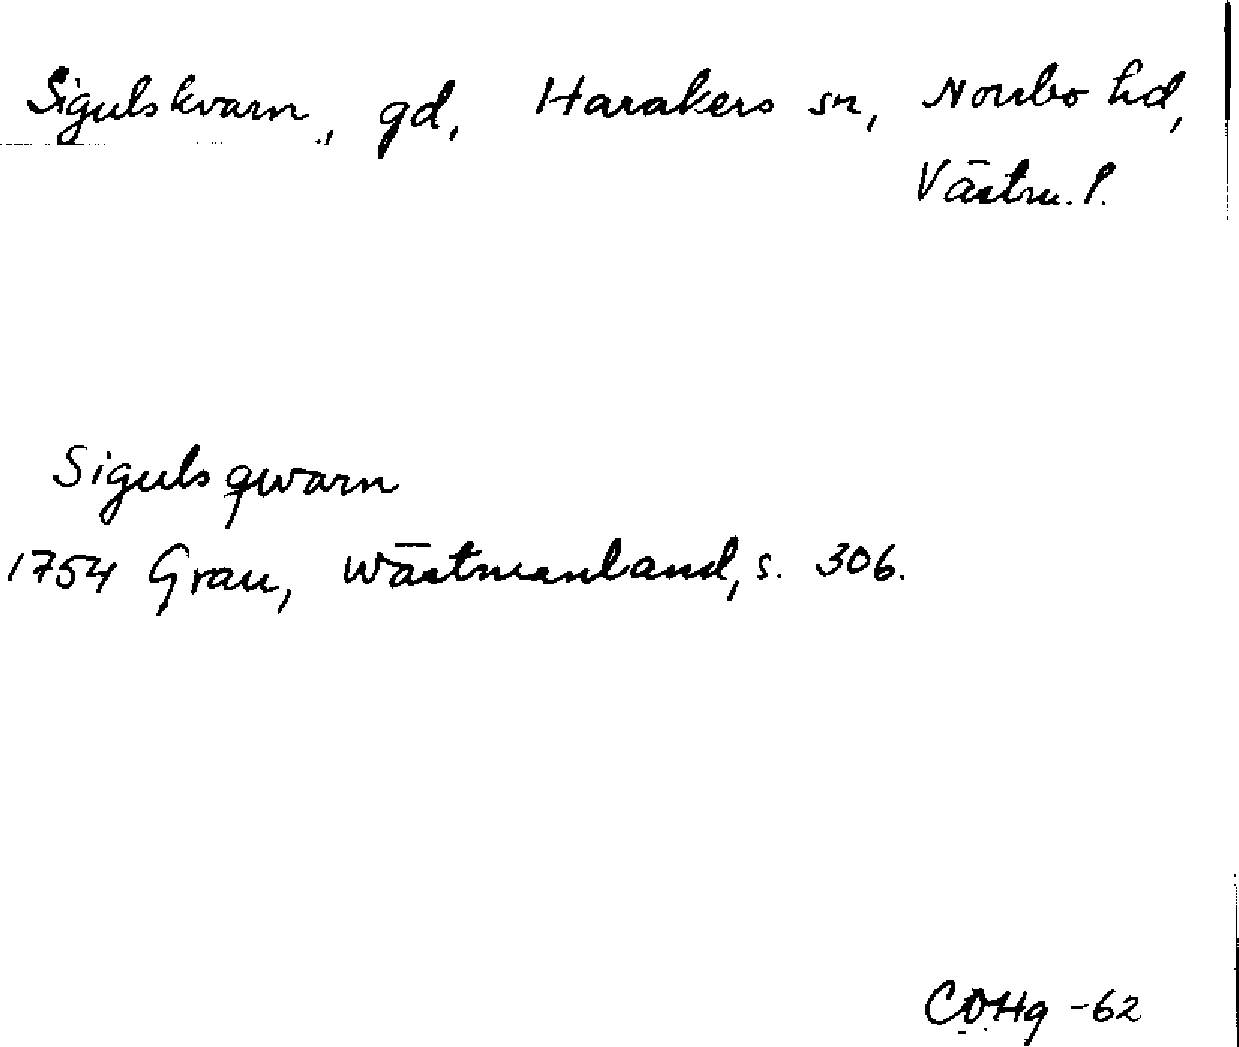 Sigulskvarn, gd, Harakers sn, Norrbo hd,
Västm. l.
Sigulsqwarn
1754 Grau, Wästmanland, s. 306.
COHg -62